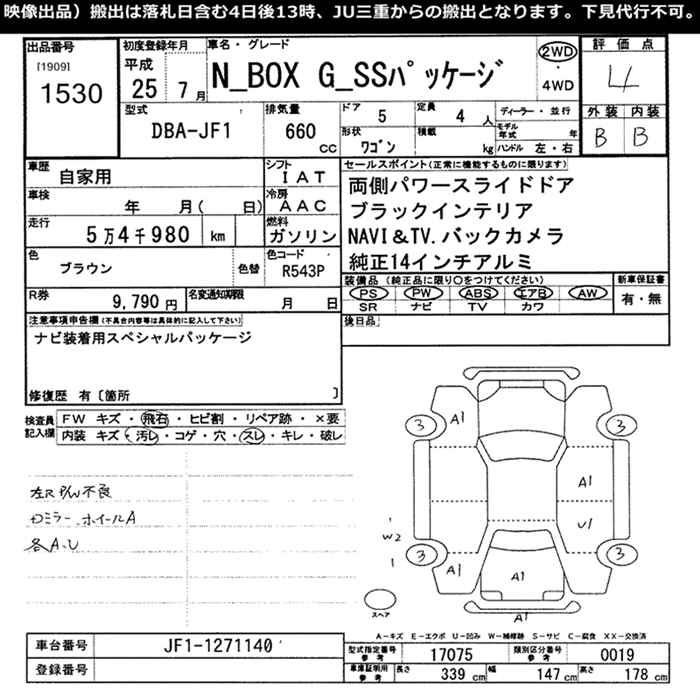 映像出品）搬出は落札日含む4日後13時、JU三重からの搬出となります。下見代行不可。
出品番号 初度登録年月 車名・グレード 2WD 評価点
[1909] 平成 N_BOX G_SSパッケージ ・ 4
1530 25 7月 4WD
型式 排気量 ドア 5 定員 4人 ディーラー・並行 外装 内装
DBA-JF1 660cc 形状 ワゴン 積載 kg モデル年式 年 B B
ハンドル 左・右
車歴 自家用 シフト IAT セールスポイント(正常に機能するものに限ります)
車検 年 月( 日) 冷房 AAC 両側パワースライドドア
ブラックインテリア
走行 5万4千980 km 燃料 ガソリン NAVI&TV.バックカメラ
純正14インチアルミ
色 ブラウン 色替 色コード R543P 装備品(純正品に限り○をつけてください) 新車保証書
PS PW ABS エアB AW 有・無
R券 9,790円 名変通知期限 月 日 SR ナビ TV カワ
注意事項申告欄(不具合内容等は具体的に記入して下さい) 後日品
ナビ装着用スペシャルパッケージ
修復歴 有〔箇所 〕
検査員記入欄 FW キズ・飛石・ヒビ割・リペア跡・×要
内装 キズ・汚レ・コゲ・穴・スレ・キレ・破レ
左R P/W不良
ロミラー ホイールA
各A.U
3 A1 3
A1
W2 U1
1
3 A1 A1 3
スペア A1
A-キズ E-エクボ U-凹み W-補修跡 S-サビ C-腐食 XX-交換済
車台番号 JF1-1271140 型式指定番号 参考 17075 類別区分番号 参考 0019
登録番号 車庫証明用 参考 長さ 339 cm 幅 147 cm 高さ 178 cm